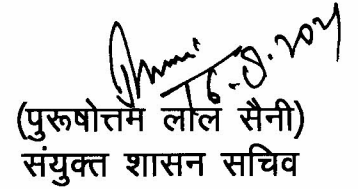 16.8.2021
(पुरूषोत्तम लाल सैनी)
संयुक्त शासन सचिव